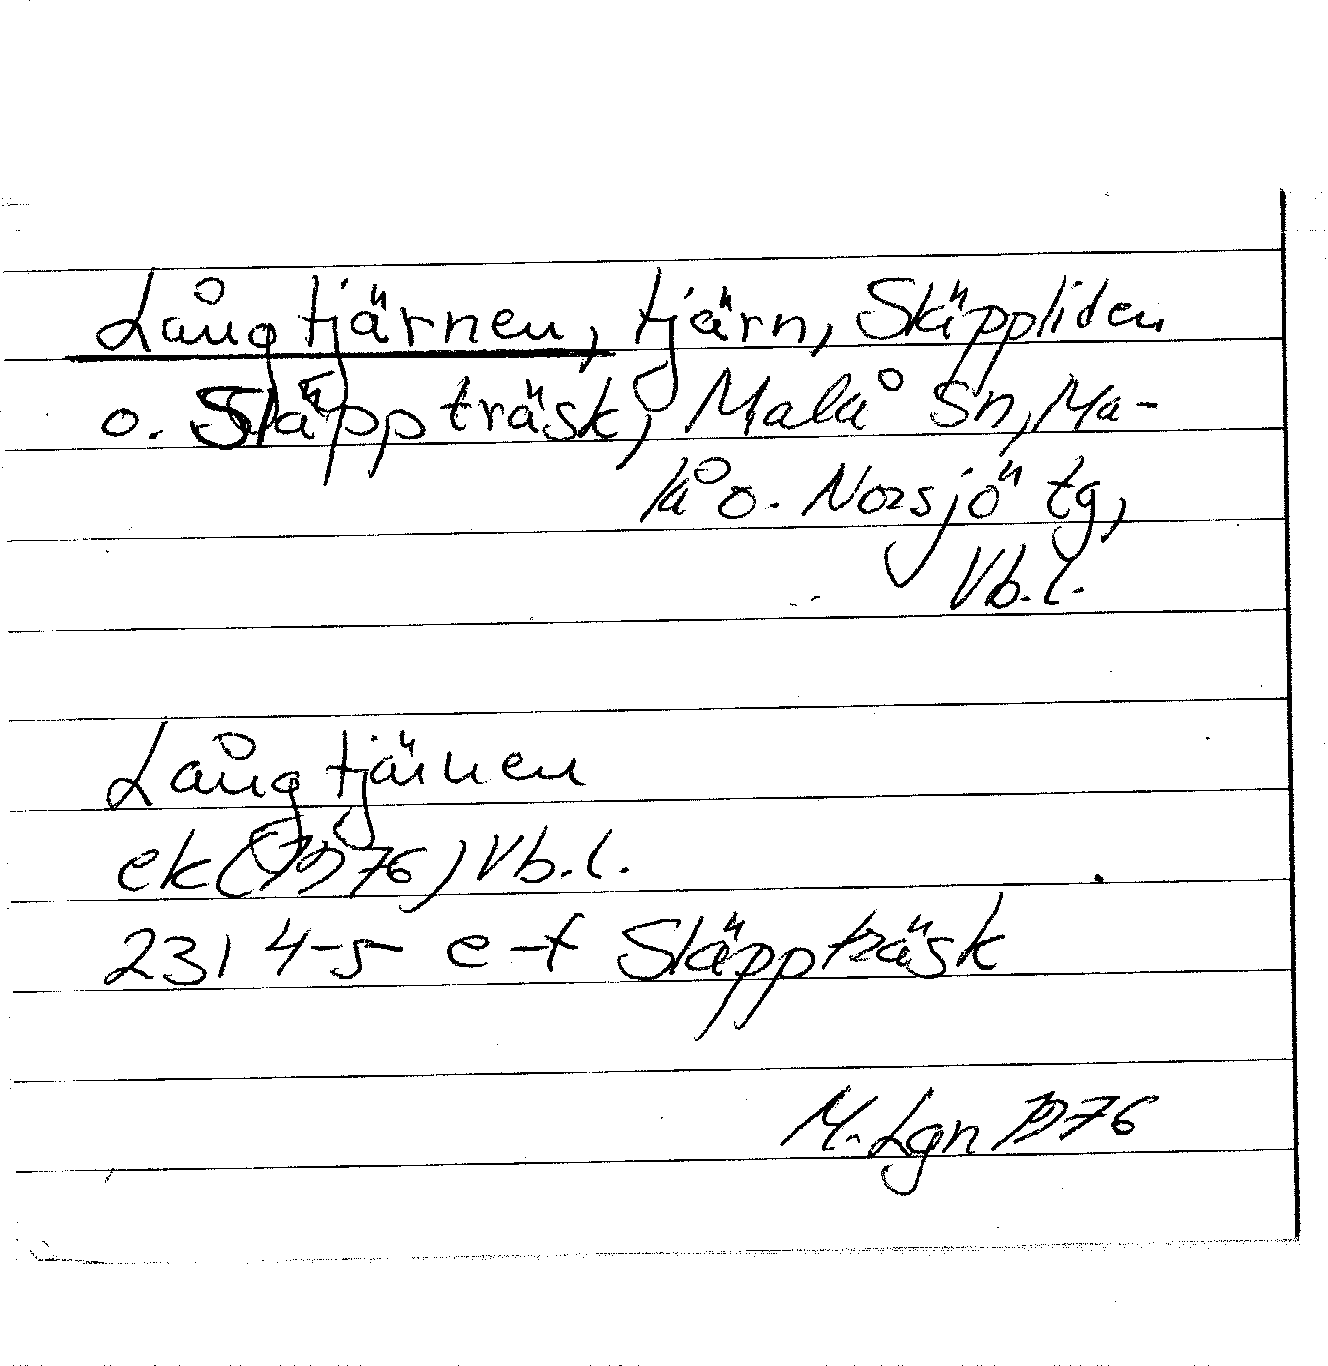 Långtjärnen, tjärn, Släppliden
o. Släppträsk, Malå Sn, Ma-
lå o. Norsjö tg,
Vb.l.
Långtjärnen
ek (1976) Vb.l.
231 4-5 e-f Släppträsk
M. Lgn 1976